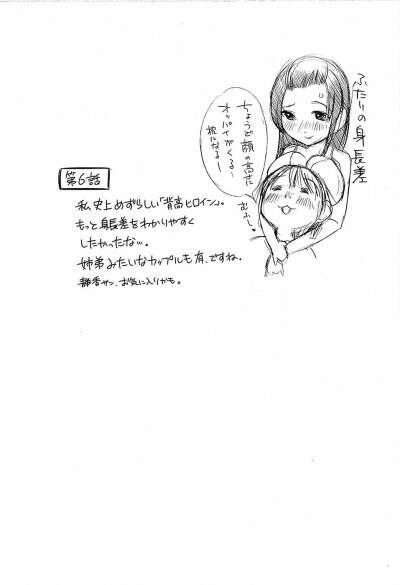 ふたりの身長差
ちょうど顔の高さに
オッパイがくる～
枕になるー
むふー
第6話
私史上めずらしい「背高ヒロイン」。
もっと身長差をわかりやすく
したかったな…。
姉弟みたいなカップルも有、ですね。
静香サン、お気に入りかも。